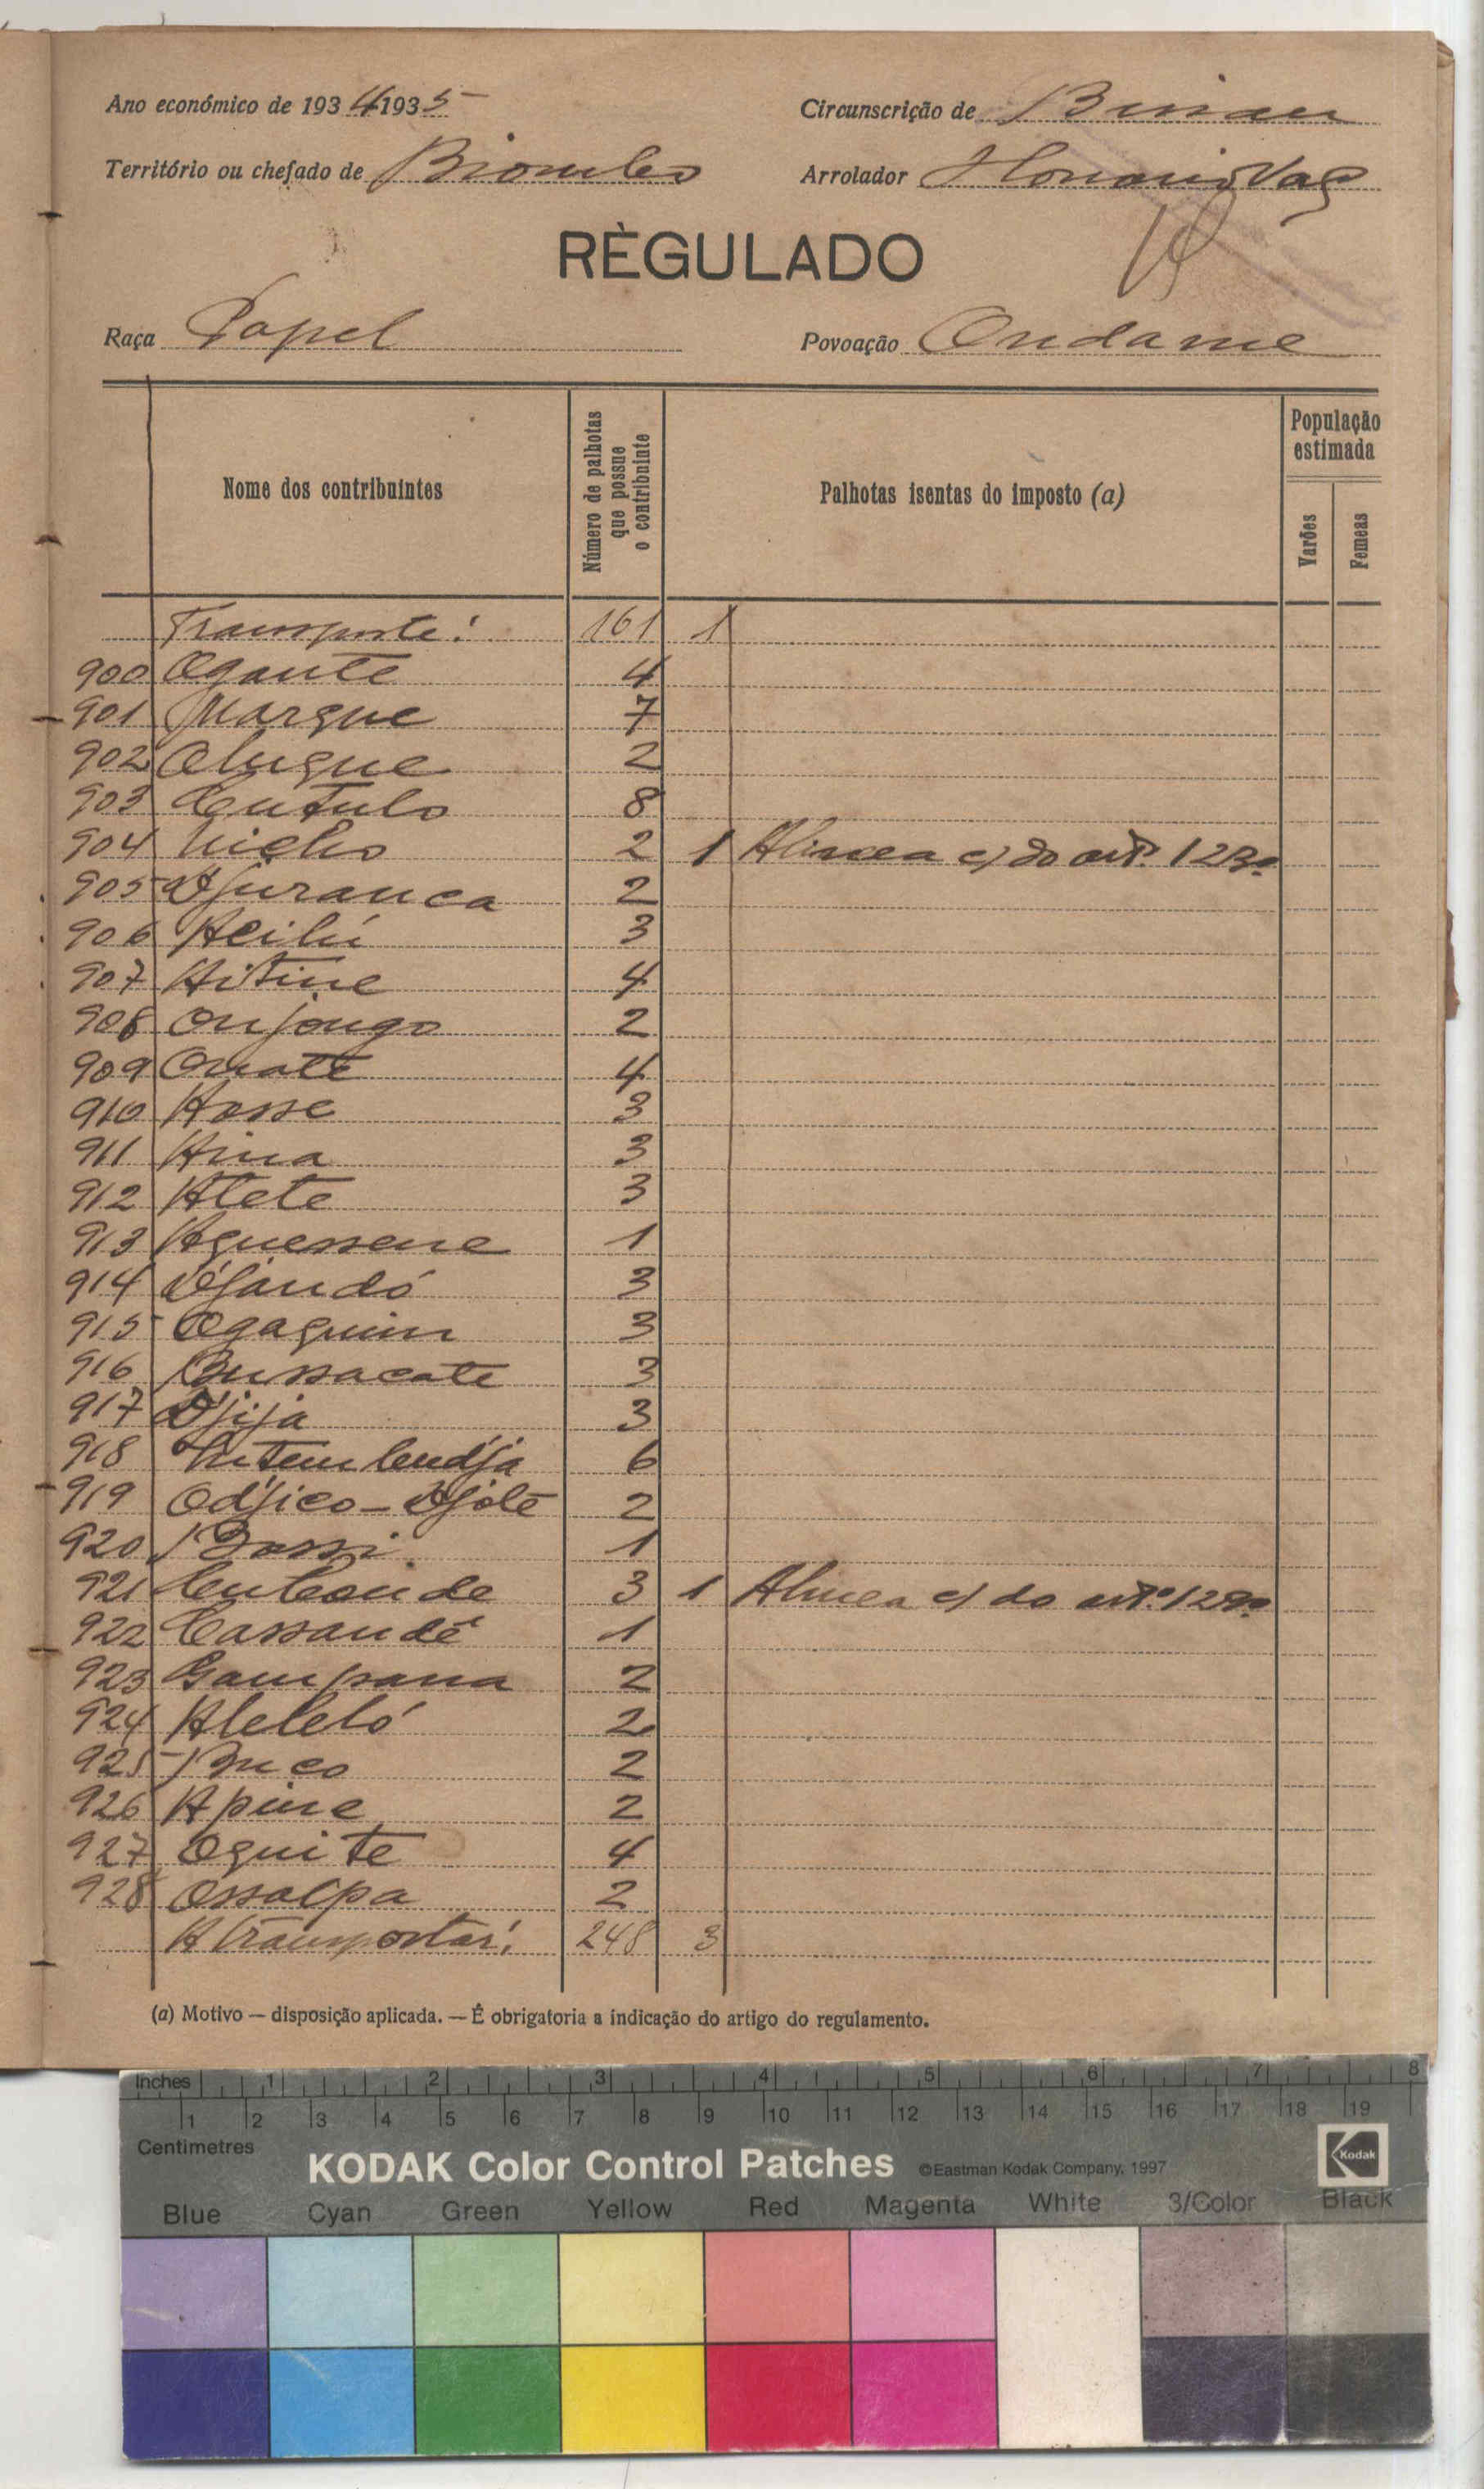 Ano económico de 1934/1935
Circunscrição de Bissau
Território ou chefado de Biombo
Arrolador Honorio Vaz
RÈGULADO
Raça Papel
Povoação Ondame
Nome dos contribuintes
Número de palhotas que possue o contribuinte
Palhotas isentas do imposto (a)
População estimada
Varões
Femeas
Transporte: 161 1
900 Ogante 4
901 Marque 7
902 Olugue 2
903 Cutulo 8
904 2 1 Alinea c) do artº. 123º
905 Djuranca 2
906 3
907 4
908 Onjongo 2
909 Onate 4
910 Hosse 3
911 Hina 3
912 Atete 3
913 Aguessene 1
914 Djandó 3
915 Ogaguim 3
916 Bussacate 3
917 Djija 3
918 6
919 Odjico-Djolé 2
920 Bossi 1
921 3 1 Alinea c) do artº.
922 Cassandé 1
923 Gampana 2
924 2
925 Buco 2
926 Apine 2
927 Oquite 4
928 Ossalpa 2
A transportar: 248 3
(a) Motivo — disposição aplicada. — É obrigatoria a indicação do artigo do regulamento.
Inches 1 2 3 4 5 6 7 8
1 2 3 4 5 6 7 8 9 10 11 12 13 14 15 16 17 18 19
Centimetres
KODAK Color Control Patches ©Eastman Kodak Company, 1997 Kodak
Blue Cyan Green Yellow Red Magenta White 3/Color Black